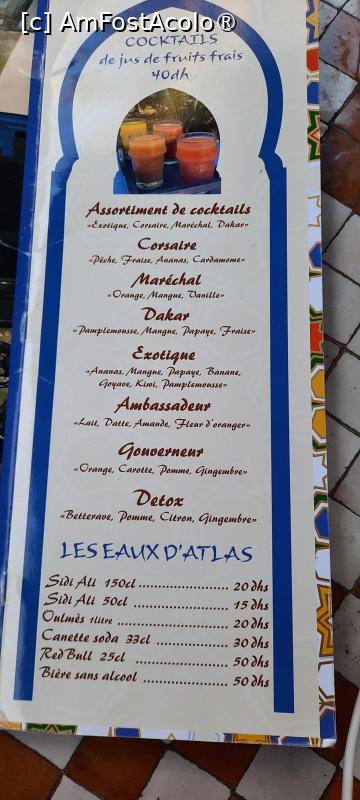 [c] AmFostAcolo®
COCKTAILS
de jus de fruits frais
40dh
Assortiment de cocktails
«Exotique, Corsaire, Maréchal, Dakar»
Corsaire
«Pêche, Fraise, Ananas, Cardamome»
Maréchal
«Orange, Mangue, Vanille»
Dakar
«Pamplemousse, Mangue, Papaye, Fraise»
Exotique
«Ananas, Mangue, Papaye, Banane,
Goyave, Kiwi, Pamplemousse»
Ambassadeur
«Lait, Datte, Amande, Fleur d'oranger»
Gouverneur
«Orange, Carotte, Pomme, Gingembre»
Detox
«Betterave, Pomme, Citron, Gingembre»
LES EAUX D'ATLAS
Sidi Ali 150cl ........................ 20 dhs
Sidi Ali 50cl ........................ 15 dhs
Oulmès 1litre ........................ 20 dhs
Canette soda 33cl .................. 30 dhs
RedBull 25cl ........................ 50 dhs
Bière sans alcool .................. 50 dhs